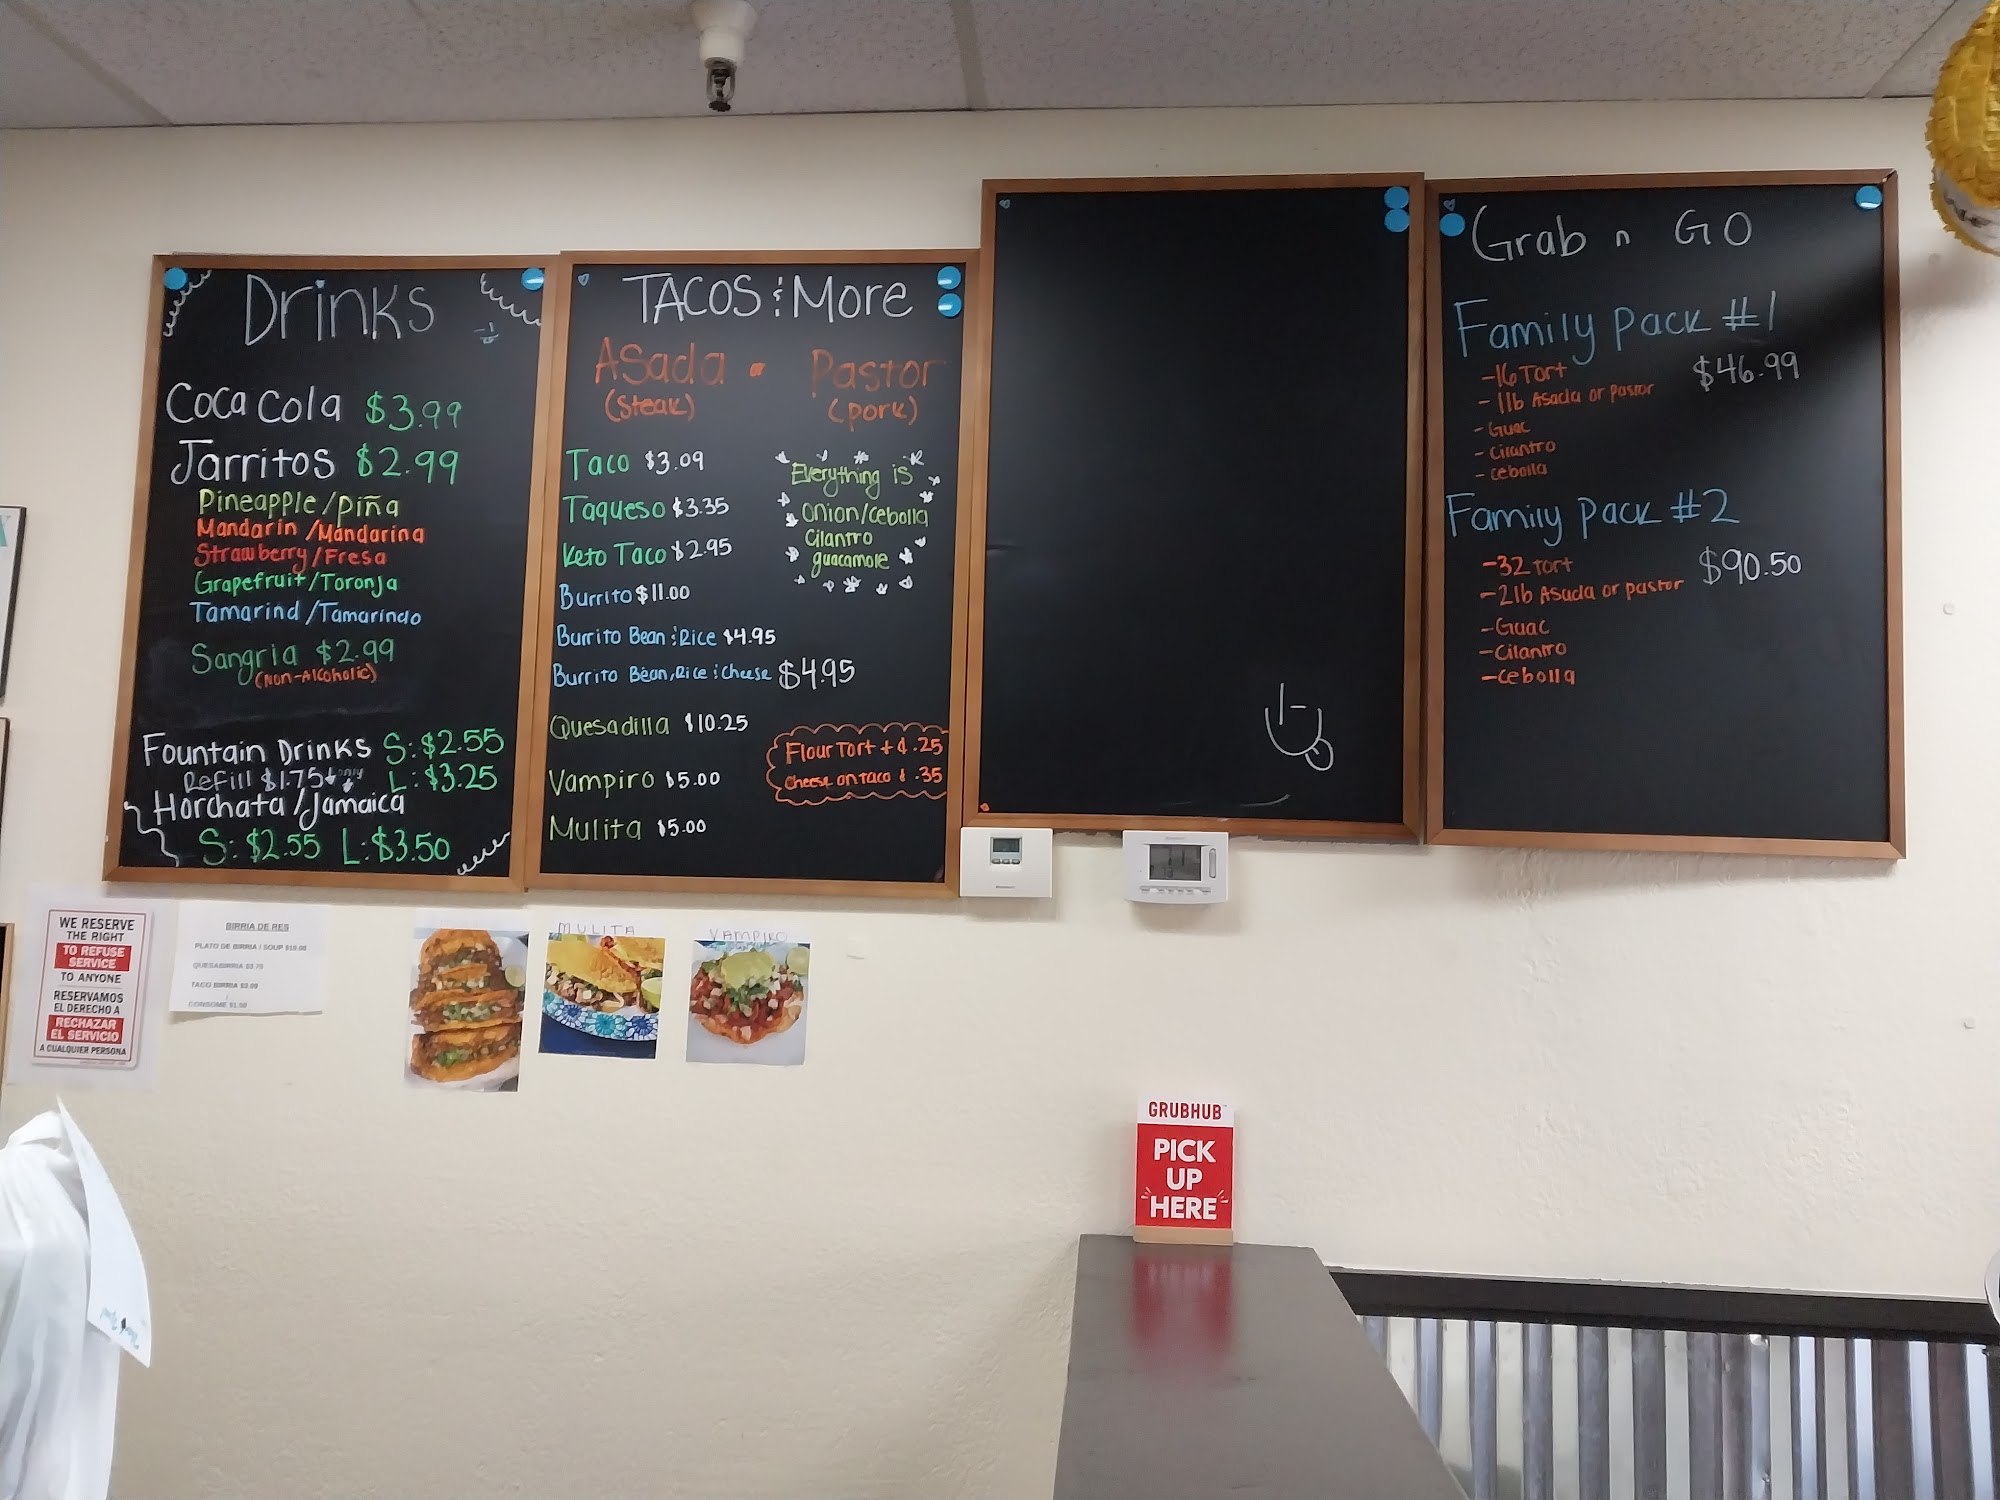 Drinks
Coca Cola $3.99
Jarritos $2.99
Pineapple/Piña
Mandarin/Mandarina
Strawberry/Fresa
Grapefruit/Toronja
Tamarind/Tamarindo
Sangria $2.99
(Non-Alcoholic)
Fountain Drinks S: $2.55
Refill $1.75 only L: $3.25
Horchata/Jamaica
S: $2.55 L: $3.50
TACOS & More
Asada or Pastor
(Steak) (pork)
Taco $3.09
Taqueso $3.35
Keto Taco $2.95
Burrito $11.00
Burrito Bean & Rice $4.95
Burrito Bean, Rice & Cheese $4.95
Quesadilla $10.25
Vampiro $5.00
Mulita $5.00
Everything is
Onion/Cebolla
Cilantro
guacamole
Flour Tort + $.25
Cheese on taco $.35
Grab n GO
Family Pack #1
$46.99
-16 Tort
-1lb Asada or Pastor
-Guac
-Cilantro
-Cebolla
Family Pack #2
$90.50
-32 Tort
-2lb Asada or pastor
-Guac
-Cilantro
-Cebolla
WE RESERVE
THE RIGHT
TO REFUSE
SERVICE
TO ANYONE
RESERVAMOS
EL DERECHO A
RECHAZAR
EL SERVICIO
A CUALQUIER PERSONA
BIRRIA DE RES
PLATO DE BIRRIA / SOUP $10.00
QUESABIRRIA $3.75
TACO BIRRIA $3.09
CONSOME $1.50
MULITA
VAMPIRO
GRUBHUB
PICK
UP
HERE